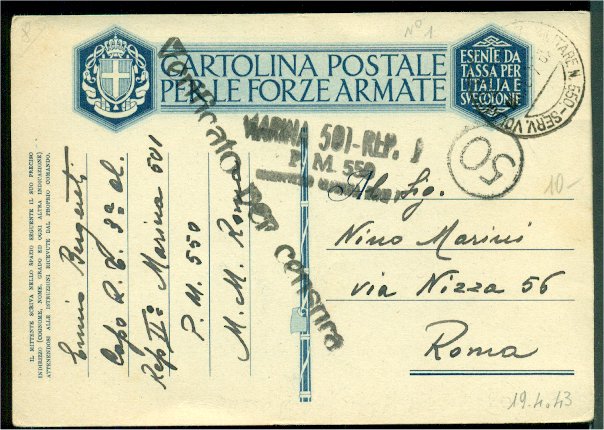 Nº 1
CARTOLINA POSTALE
PER LE FORZE ARMATE
ESENTE DA
TASSA PER
L'ITALIA E
SUE COLONIE
N. 550 - SERV.
Verificato per censura
MARINA 501 - REP.
P. M. 550
50
10-
IL MITTENTE SCRIVA NELLO SPAZIO SEGUENTE IL SUO PRECISO
INDIRIZZO (COGNOME, NOME, GRADO ED OGNI ALTRA INDICAZIONE)
ATTENENDOSI ALLE ISTRUZIONI RICEVUTE DAL PROPRIO COMANDO.
Ennio
Capo R. T. 3ª cl.
Rep IIº Marina 501
P. M. 550
M. M. Roma
Al Sig.
Nino Marini
via Nizza 56
Roma
19.4.43